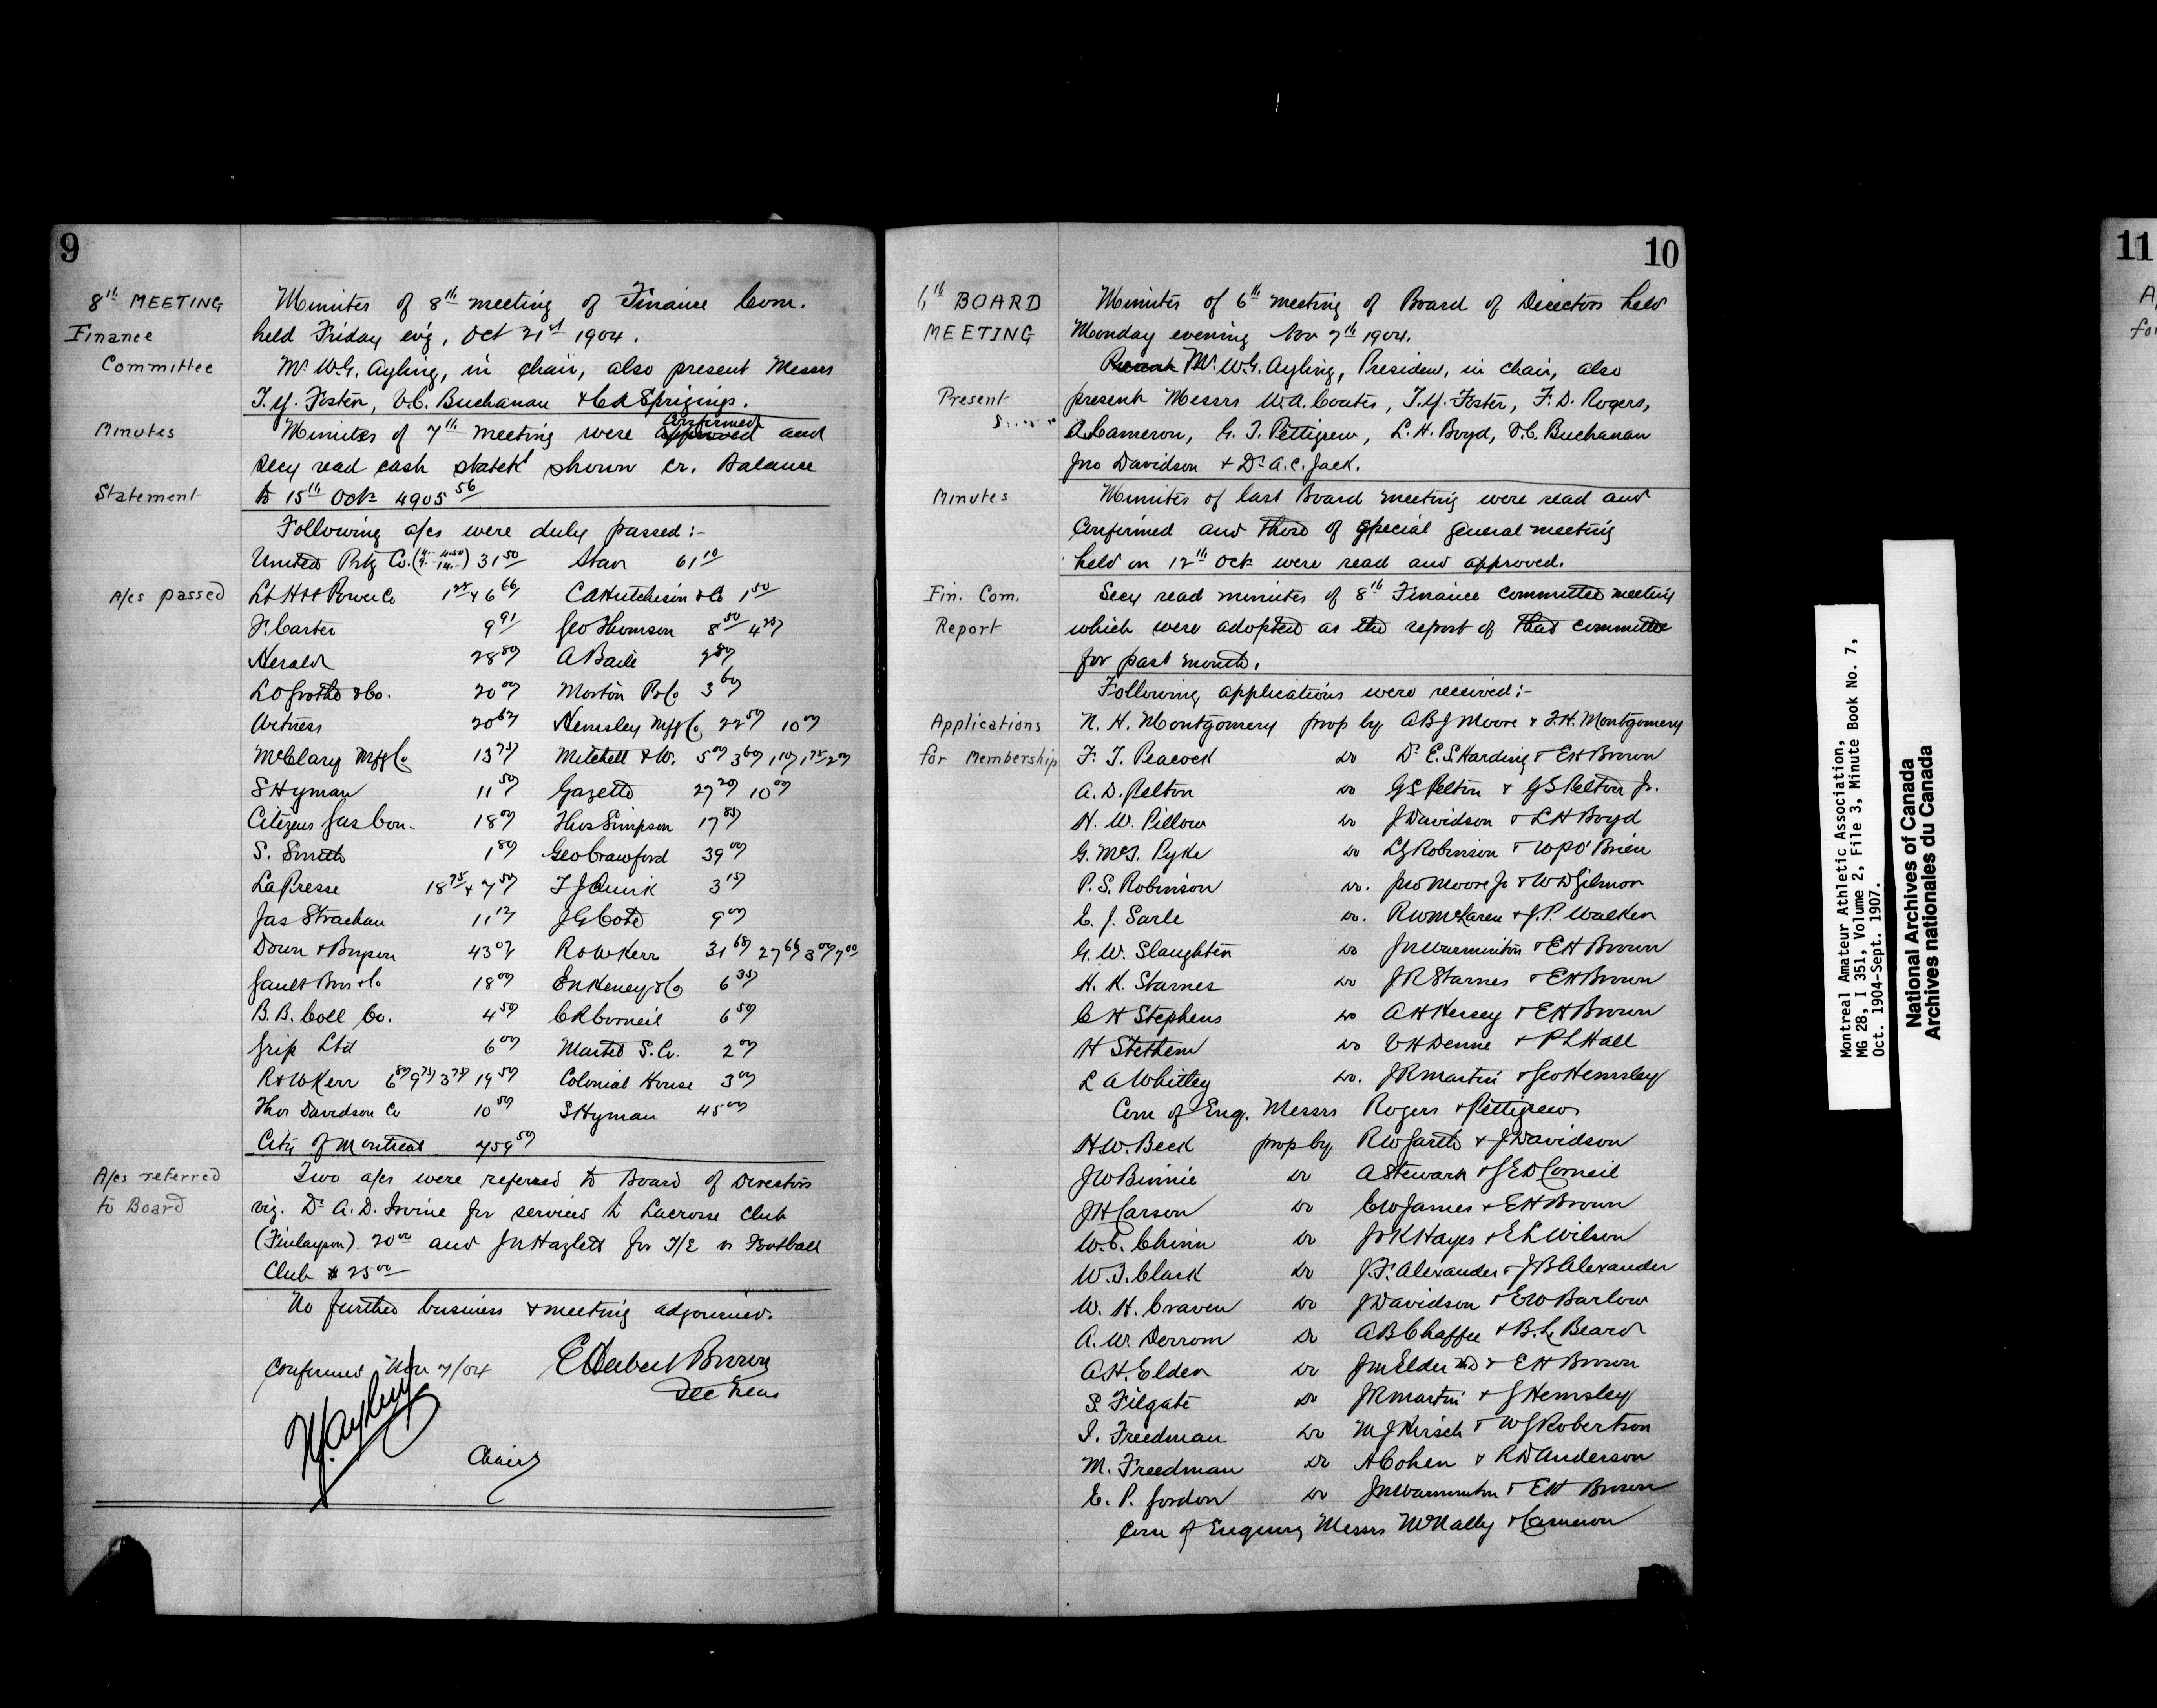 9
8th MEETING
Finance
Committee
Minutes of 8th meeting of Finance Com.
held Friday ev'g, Oct 21st 1904.
Mr W.G. Ayling, in chair, also present Messrs
T.Y. Foster, V.C. Buchanan & C A Sprigings.
Minutes
Minutes of 7th meeting were approved confirmed and
Secy read cash statet shown cr. Balance
Statement
to 15th Oct 4905 56
Following a/cs were duly passed:-
United Prtg Co. 31 50 Star 61 10
A/cs passed
L H & P Power Co 1 25 & 6 66 C A Hutchison & Co 1 50
F. Carter 9 91 Geo Thomson 8 50 4 20
Herald 28 80 A Baile
L O Grothe & Co. 20 00 Morton P Co 3 60
Witness 20 62 Hemsley Mfg Co 22 50 10 00
McClary Mfg Co 13 75 Mitchell & W. 5 00 3 60 1 10 1 75 2 00
S Hyman 11 50 Gazette 27 20 10 00
Citizens Gas Con. 18 00 Thos Simpson 17 85
S. Smith 1 80 Geo Crawford 39 00
La Presse 18 75 & 7 50 T J Quirk 3 15
Jas Strachan 11 12 J G Coté 9 00
Down & Bryson 43 02 R & W Kerr 31 68 27 66 3 00 7 00
Gault Bros & Co 18 00 E N Heney & Co 6 35
B.B. Coll Co. 4 50 C R Corneil 6 50
Grip Ltd 6 00 S. Co. 2 00
R & W Kerr 6 80 9 75 3 75 19 50 Colonial House 3 00
Thos Davidson Co 10 50 S Hyman 45 00
City of Montreal 759 50
A/cs referred
to Board
Two a/cs were referred to Board of Directors
viz. Dr A.D. Irvine for services to Lacrosse Club
(Finlayson). 20 00 and J N Hazlett for T/E in Football
Club $25 00
No further business & meeting adjourned.
Confirmed Nov 7/04 E Herbert Brown
Sec Treas
W.G. Ayling
Chair
10
6th BOARD
MEETING
Minutes of 6th meeting of Board of Directors held
Monday evening Nov 7th 1904.
Present Mr W.G. Ayling, President, in chair, also
Present
present Messrs W.A. Coates, T.Y. Foster, F.D. Rogers,
A. Cameron, G.T. Pettigrew, L.H. Boyd, V.C. Buchanan
Jno Davidson & Dr A.C. Jack.
Minutes
Minutes of last Board meeting were read and
confirmed and those of special general meeting
held on 12th Oct were read and approved.
Fin. Com.
Report
Secy read minutes of 8th Finance Committee meeting
which were adopted as the report of that committee
for past month.
Following applications were received:-
Applications
for Membership
N. H. Montgomery prop by A B J Moore & F.H. Montgomery
F. T. Peacock do Dr E.S. Harding & E H Brown
A. D. Pelton do G S Pelton & G S Pelton Jr.
H. W. Pillow do J Davidson & L H Boyd
G. McT. Pyke do L G Robinson & W P O'Brien
P. S. Robinson do. Jno Moore Jr & W D Gilmor
E. J. Sarle do. R W McLaren & J. P. Walker
G. W. Slaughter do J N Warminton & E H Brown
H. K. Starnes do J R Starnes & E H Brown
C H Stephens do A H Hersey & E H Brown
H Stethem do V H Denne & P L Hall
L A Whitley do. J R Martin & Geo Hemsley
Com of Enq. Messrs Rogers & Pettigrew
H W. Beck prop by R W Garth & J Davidson
J W Binnie do A Stewart & J E D Corneil
J H Carson do C W James & E H Brown
W. E. Chinn do J K Hayes & E L Wilson
W. T. Clark do J. F. Alexander & J B Alexander
W. H. Craven do J Davidson & E W Barlow
A. W. Derrom do A B Chaffee & B. L. Beard
A. H. Elder do J M Elder MD & E H Brown
S. Filgate do J R Martin & G Hemsley
I. Freedman do M J Hirsch & W G Robertson
M. Freedman do A Cohen & R D Anderson
E. P. Gordon do J N Warminton & E H Brown
Com of Enquiry Messrs McNally & Cameron
Montreal Amateur Athletic Association,
MG 28, I 351, Volume 2, File 3, Minute Book No. 7,
Oct. 1904-Sept. 1907.
National Archives of Canada
Archives nationales du Canada
11